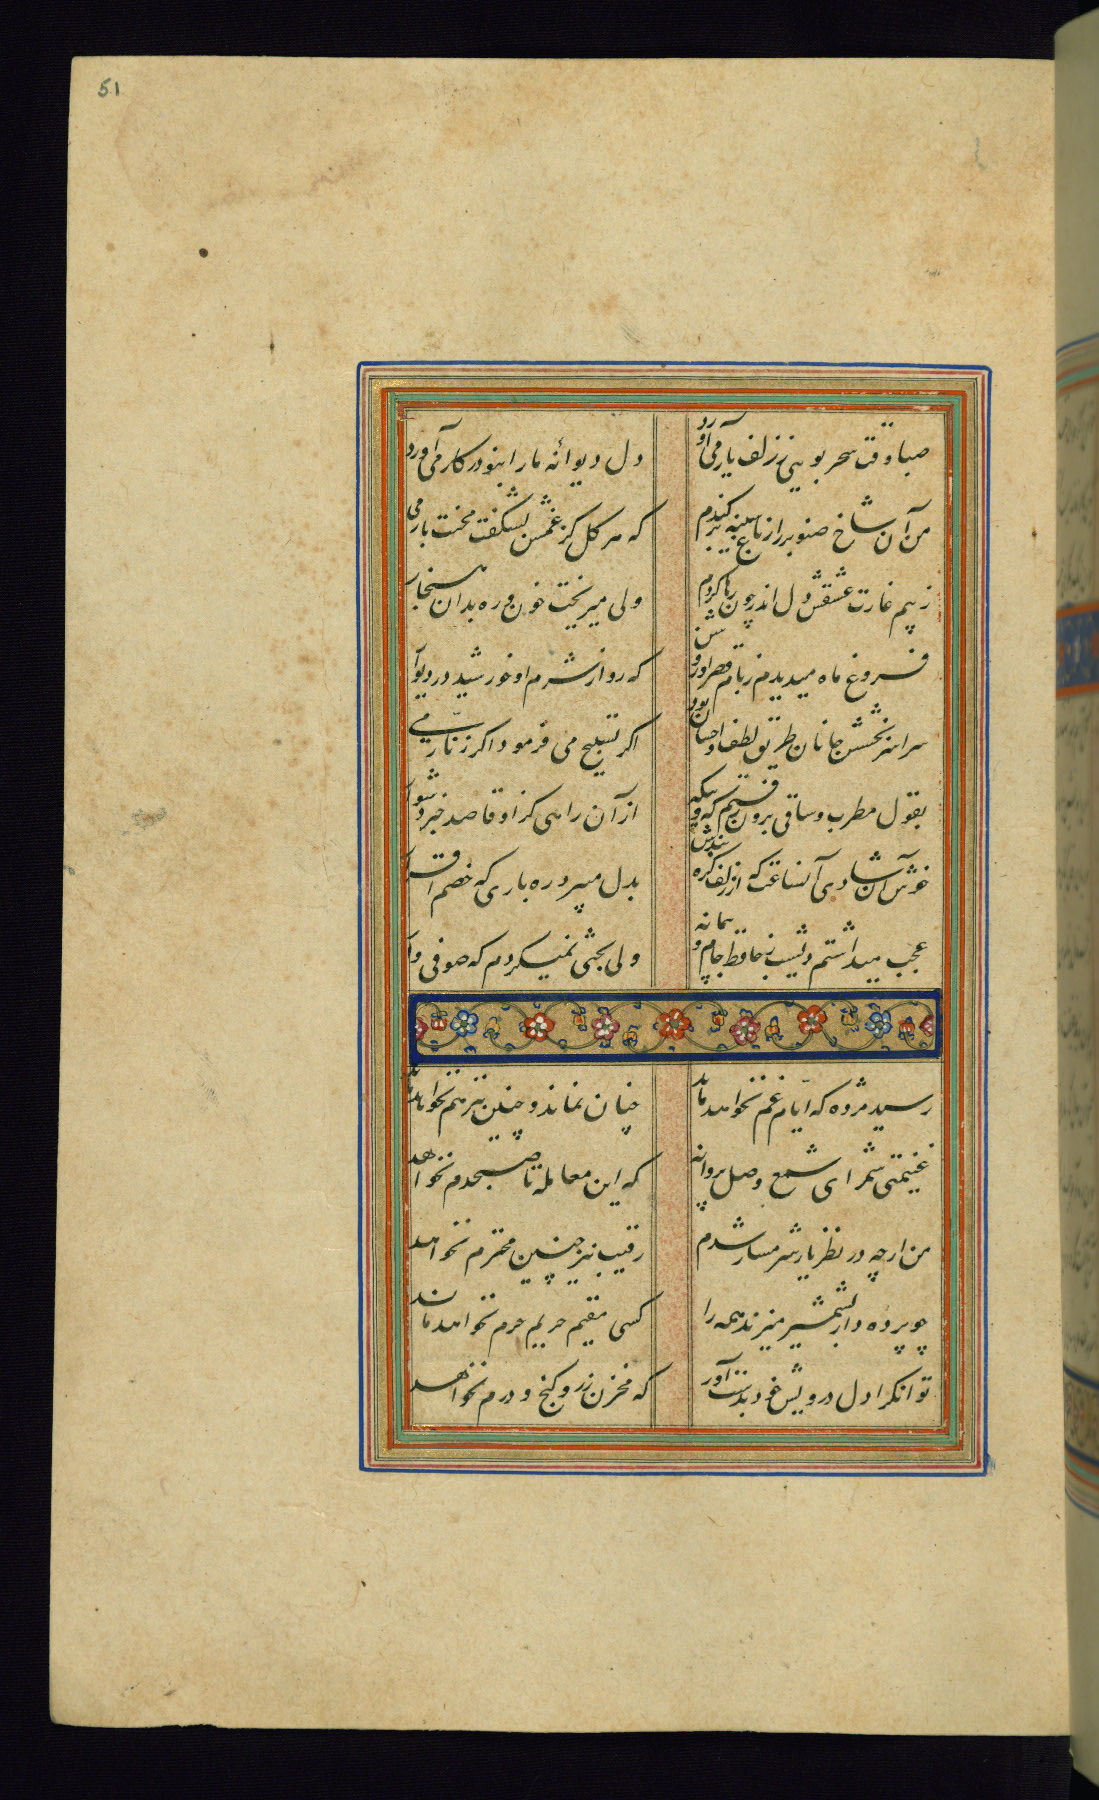 51
صبا وقت سحر بویی ز زلف یار می آورد
دل دیوانه مارا بنو در کار می آورد
من آن شاخ صنوبر را ز باغ سینه برکندم
که هر گل کز غمش بشگفت محنت بار می
ز بیم غارت عشقش دل اندر چون رها کردم
ولی میریخت خون و ره بدان هنجار
فروغ ماه میدیدم ز بام قصر او روشن
که رو از شرم او خورشید در دیوا
سراسر بخشش جانان طریق لطف و احسان بود
اگر تسبیح می فرمود اگر زنار می
بقول مطرب و ساقی برون رفتم که و بیکه
از آن راهی کز او قاصد خبر دشوا
خوش آن شادی آنساعت که از زلف گره بندش
بدل میبرد ره باری که خصم اقر
عجب میداشتم دیشب ز حافظ جام و پیمانه
ولی بحثی نمیکردم که صوفی وا
رسید مژده که ایام غم نخواهد ماند
چنان نماند و چنین نیز هم نخواهد ماند
غنیمتی شمر ای شمع وصل پروانه
که این معامله تا صبحدم نخواهد
من ارچه در نظر یار شرمسار شدم
رقیب نیز چنین محترم نخواهد
چو پرده دار بشمشیر میزند همه را
کسی مقیم حریم حرم نخواهد ماند
توانگرا دل درویش خود بدست آور
که مخزن زر و گنج و درم نخواهد